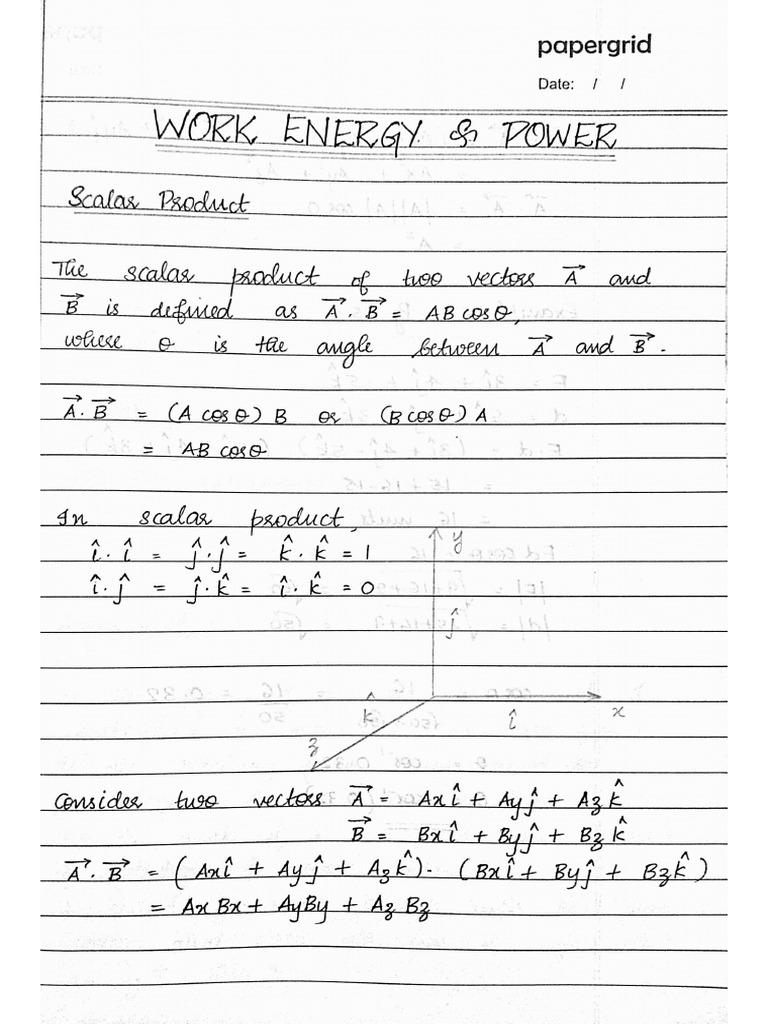 papergrid
Date: / /
WORK ENERGY & POWER
Scalar Product
The scalar product of two vectors A⃗ and
B⃗ is defined as A⃗·B⃗ = AB cosθ,
where θ is the angle between A⃗ and B⃗.
A⃗·B⃗ = (A cosθ) B or (B cosθ) A
= AB cosθ
In scalar product,
î·î = ĵ·ĵ = k̂·k̂ = 1
î·ĵ = ĵ·k̂ = î·k̂ = 0
y
ĵ
k̂ î x
z
Consider two vectors A⃗ = Axî + Ayĵ + Azk̂
B⃗ = Bxî + Byĵ + Bzk̂
A⃗·B⃗ = (Axî + Ayĵ + Azk̂)·(Bxî + Byĵ + Bzk̂)
= AxBx + AyBy + AzBz